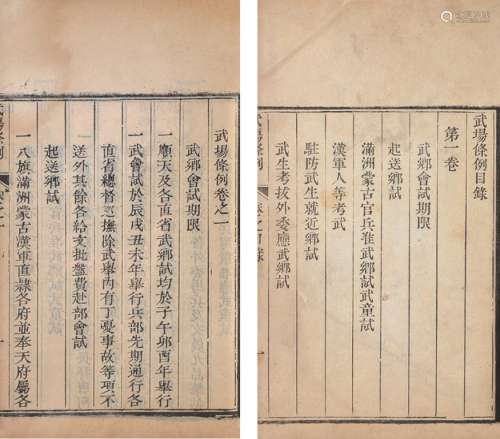 武場條例目錄
第一卷
武鄉會試期限
起送鄉試
滿洲蒙古官兵准武鄉試武童試
漢軍人等考武
駐防武生就近鄉試
武生考拔外委應武鄉試
武場條例
武場條例卷之一
武鄉會試期限
一順天及各直省武鄉試均於子午卯酉年舉行
一武會試於辰戌丑未年舉行兵部先期通行各
直省總督巡撫除武舉內有丁憂事故等項不
送外其餘各給文批盤費赴部會試
起送鄉試
一八旗滿洲蒙古漢軍直隸各府並奉天府屬各
武場條例